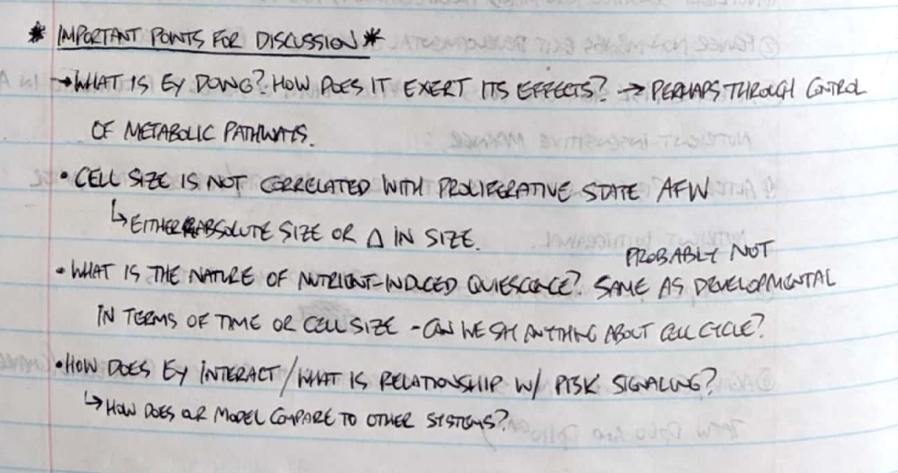 * IMPORTANT POINTS FOR DISCUSSION *
→ WHAT IS Ey DOING? HOW DOES IT EXERT ITS EFFECTS? → PERHAPS THROUGH CONTROL
OF METABOLIC PATHWAYS.
• CELL SIZE IS NOT CORRELATED WITH PROLIFERATIVE STATE AFW
↳ EITHER ABSOLUTE SIZE OR Δ IN SIZE.
PROBABLY NOT
• WHAT IS THE NATURE OF NUTRIENT-INDUCED QUIESCENCE? SAME AS DEVELOPMENTAL
IN TERMS OF TIME OR CELL SIZE - CAN WE SAY ANYTHING ABOUT CELL CYCLE?
• HOW DOES Ey INTERACT / WHAT IS RELATIONSHIP W/ PI3K SIGNALING?
↳ HOW DOES OUR MODEL COMPARE TO OTHER SYSTEMS?